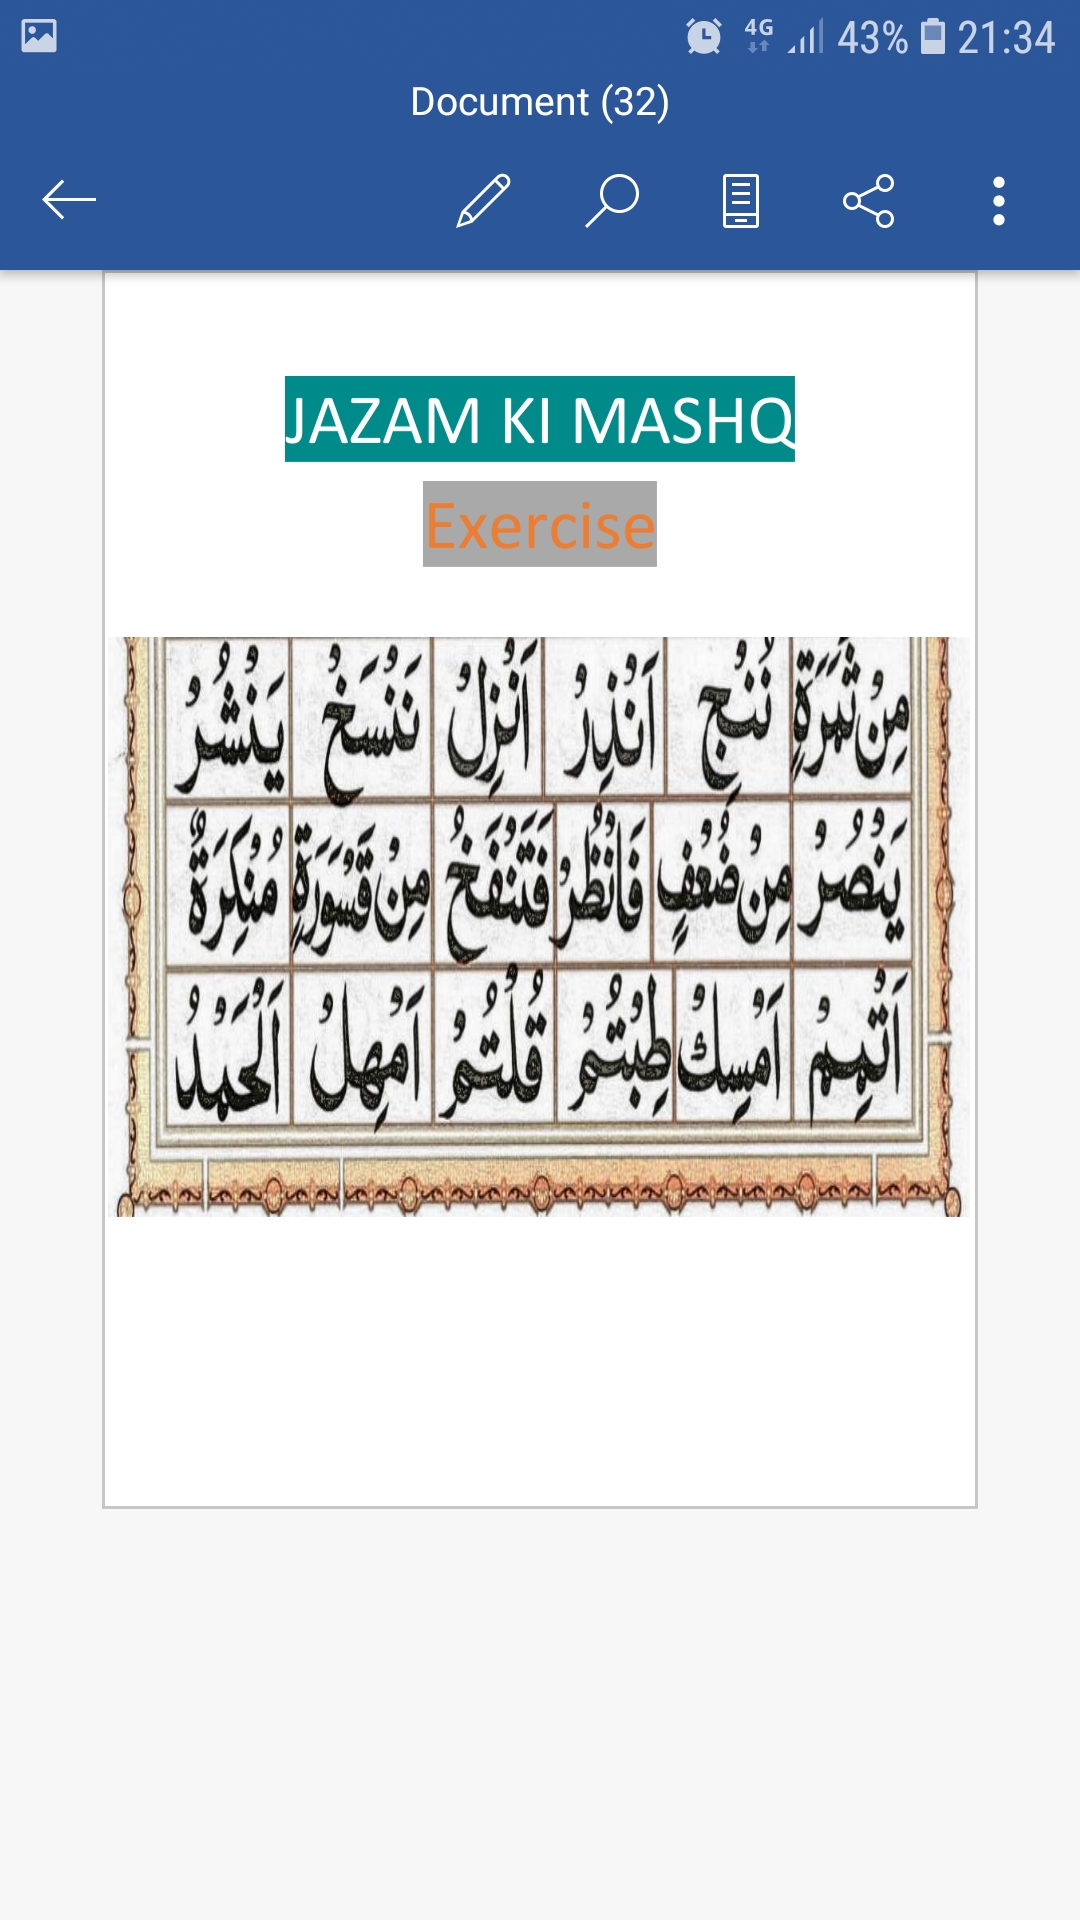 4G 43% 21:34
Document (32)
JAZAM KI MASHQ
Exercise
مِنْ ثَمَرَةٍ نُنْجِ اَنْذِرْ اَنْزِلْ نَنْسَخْ يَنْشُرْ
يَنْصُرْ مِنْ ضُعْفٍ فَانْظُرْ فَتَنْفُخْ مِنْ قَسْوَرَةٍ مُنْكِرَةٌ
اَتْمِمْ اَمْسِكْ طِبْتُمْ قُلْتُمْ اَمْهِلْ اَلْحَمْدُ